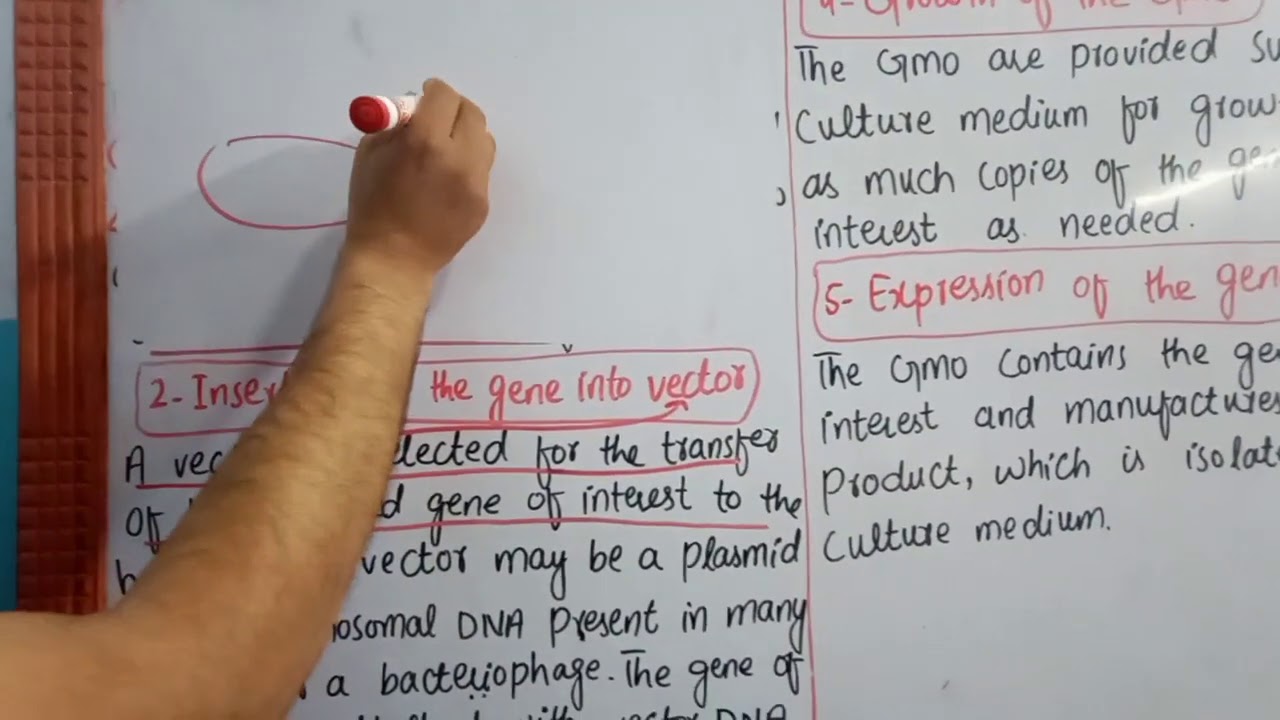 2- Inser the gene into vector
A vec lected for the transfer
of d gene of interest to the
vector may be a plasmid
osomal DNA present in many
a bacteriophage. The gene of
DNA
4- Growth of the
The GMO are provided su
Culture medium for grow
as much copies of the ge
interest as needed.
5- Expression of the gen
The GMO contains the ge
interest and manufactures
product, which is isolat
Culture medium.